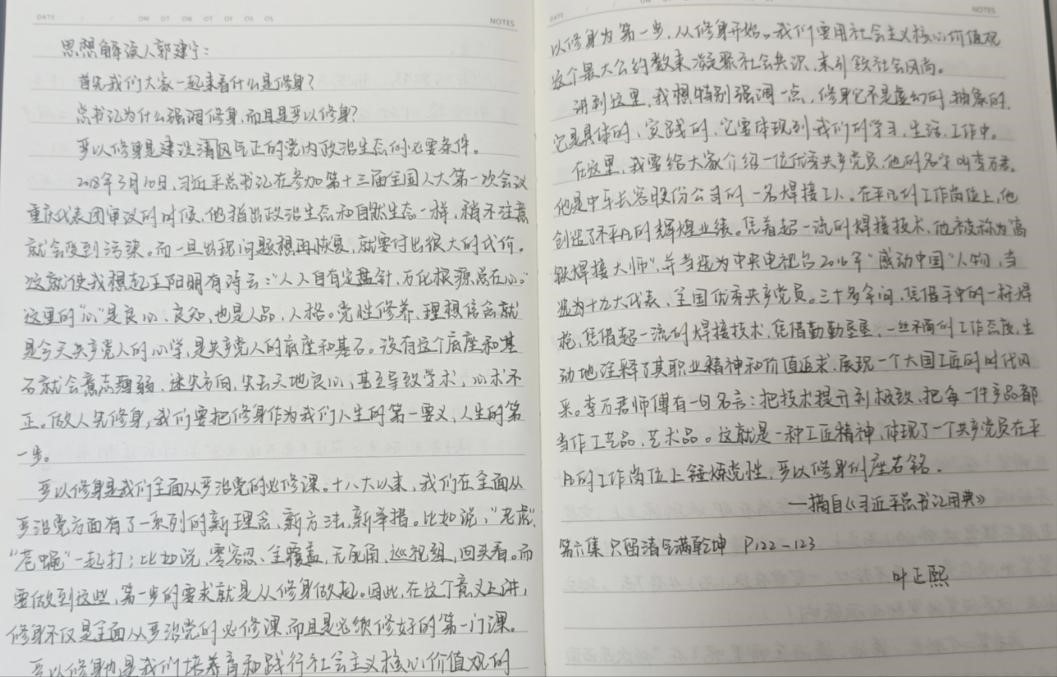 DATE
NOTES
思想解读人郭建宁：
首先我们大家一起来看什么是修身？
总书记为什么强调修身，而且是严以修身？
严以修身是建设清风正气的党内政治生态的必要条件。
2018年3月10日，习近平总书记在参加第十三届全国人大第一次会议
重庆代表团审议的时候，他指出政治生态和自然生态一样，稍不注意
就会受到污染。而一旦出现问题想再恢复，就要付出很大的代价。
这就使我想起王阳明有诗云：“人人自有定盘针，万化根源总在心。”
这里的“心”是良心、良知，也是人品，人格。党性修养、理想信念就
是今天共产党人的心学，是共产党人的底座和基石。没有这个底座和基
石就会意志薄弱，迷失方向，失去天地良心，甚至导致学术，心术不
正。做人先修身，我们要把修身作为我们人生的第一要义，人生的第
一步。
严以修身是我们全面从严治党的必修课。十八大以来，我们在全面从
严治党方面有了一系列的新理念，新方法，新举措。比如说，“老虎”、
“苍蝇”一起打；比如说，零容忍、全覆盖，无死角，巡视组，回头看。而
要做到这些，第一步的要求就是从修身做起。因此，在这个意义上讲，
修身不仅是全面从严治党的必修课，而且是必须修好的第一门课。
严以修身也是我们培养育和践行社会主义核心价值观的
DATE
NOTES
以修身为第一步，从修身开始。我们要用社会主义核心价值观
这个最大公约数来凝聚社会共识，来引领社会风尚。
讲到这里，我想特别强调一点，修身它不是虚幻的，抽象的，
它是具体的，实践的，它要体现到我们的学习、生活、工作中。
在这里，我要给大家介绍一位优秀共产党员，他的名字叫李万君。
他是中车长客股份公司的一名焊接工人。在平凡的工作岗位上，他
创造了不平凡的辉煌业绩。凭着超一流的焊接技术，他被称为“高
铁焊接大师”，并当选为中央电视台2016年“感动中国”人物，当
选为十九大代表，全国优秀共产党员。三十多年间，凭借手中的一杆焊
枪，凭借超一流的焊接技术，凭借勤勤恳恳、一丝不苟的工作态度，生
动地诠释了其职业精神和价值追求，展现一个大国工匠的时代风
采。李万君师傅有一句名言：把技术提升到极致，把每一件产品都
当作工艺品，艺术品。这就是一种工匠精神，体现了一个共产党员在平
凡的工作岗位上锤炼党性，严以修身的座右铭。
——摘自《习近平总书记用典》
第六集 只留清气满乾坤 P122-123
叶正熙